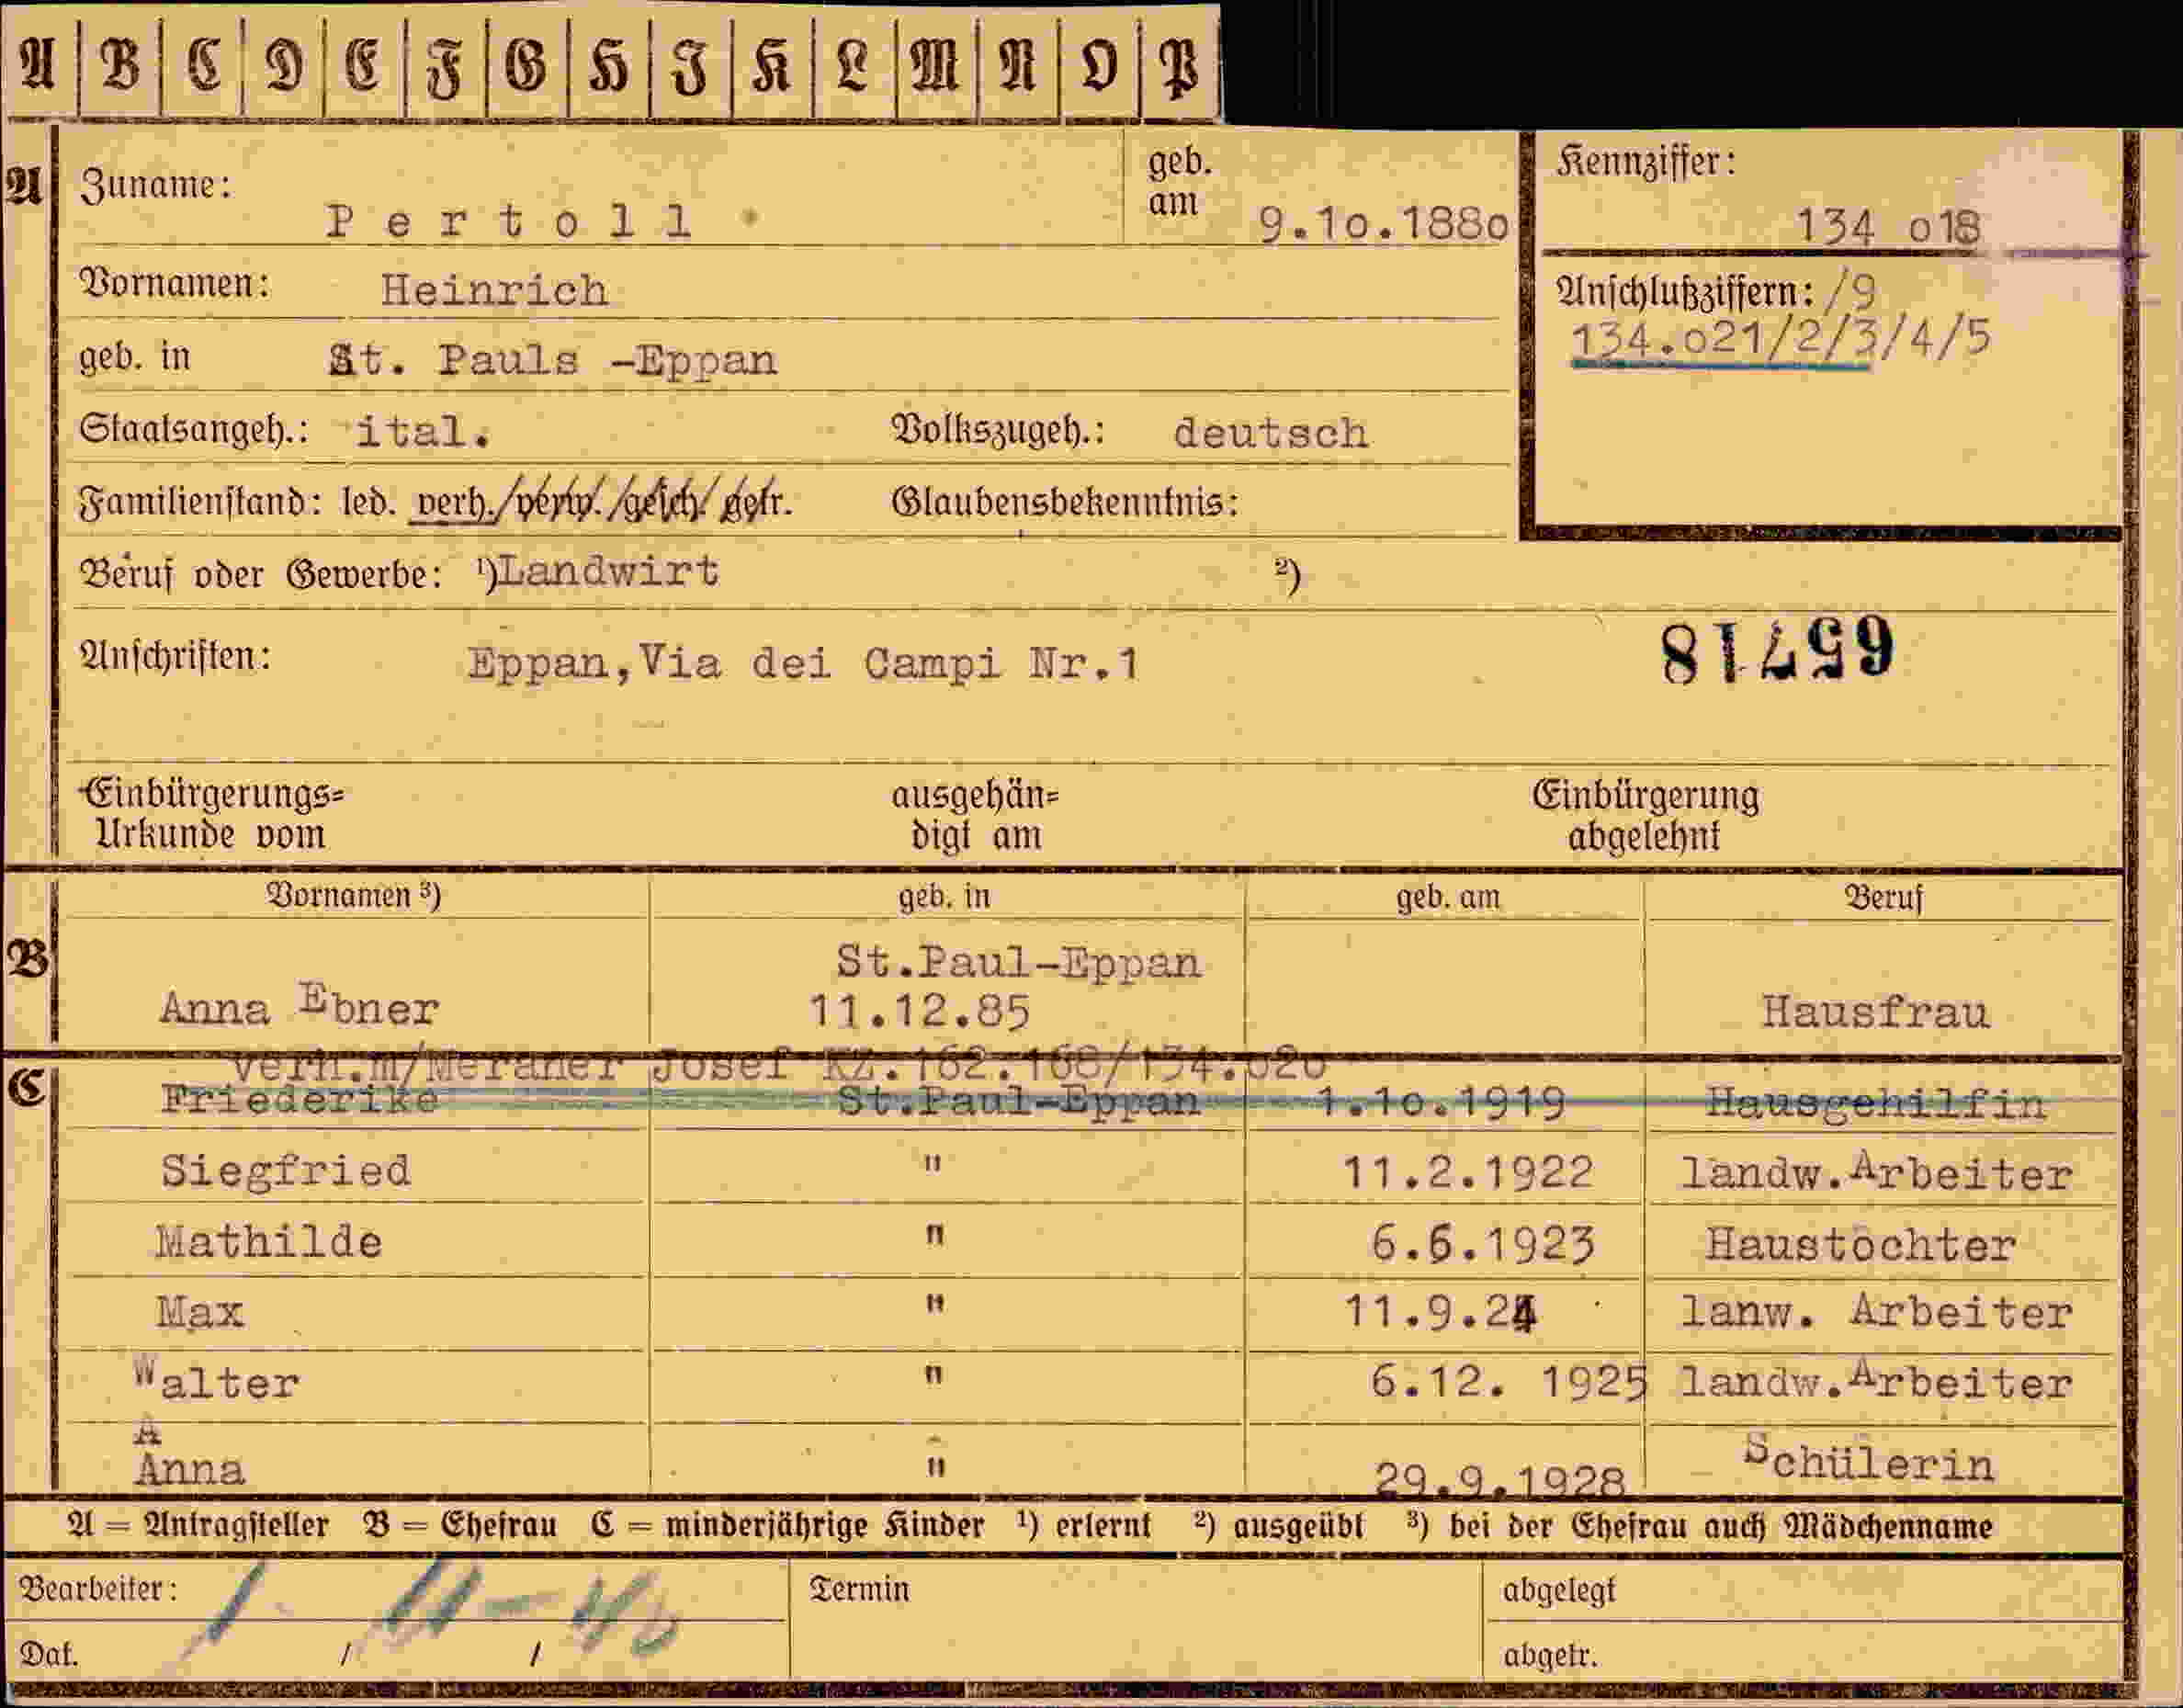 A B C D E F G H I K L M N O P
A Zuname: Pertoll geb. am 9.10.1880
Kennziffer: 134 018
Vornamen: Heinrich
Anschlußziffern: /9
134.021/2/3/4/5
geb. in St. Pauls -Eppan
Staatsangeh.: ital. Volkszugeh.: deutsch
Familienstand: led. verh./verw./gesch/ getr. Glaubensbekenntnis:
Beruf oder Gewerbe: ¹)Landwirt ²)
Anschriften: Eppan,Via dei Campi Nr.1
65718
Einbürgerungs= ausgehän= Einbürgerung
Urkunde vom digt am abgelehnt
Vornamen ³) geb. in geb. am Beruf
B St.Paul-Eppan
Anna Ebner 11.12.85 Hausfrau
verh.m/Meraner Josef KZ.162.168/134.020
C Friederike St.Paul-Eppan 1.10.1919 Hausgehilfin
Siegfried " 11.2.1922 landw.Arbeiter
Mathilde " 6.6.1923 Haustochter
Max " 11.9.24 lanw. Arbeiter
Walter " 6.12. 1925 landw.Arbeiter
A
Anna " 29.9.1928 Schülerin
A = Antragsteller B = Ehefrau C = minderjährige Kinder ¹) erlernt ²) ausgeübt ³) bei der Ehefrau auch Mädchenname
Bearbeiter: Termin abgelegt
Dat. / / abgetr.